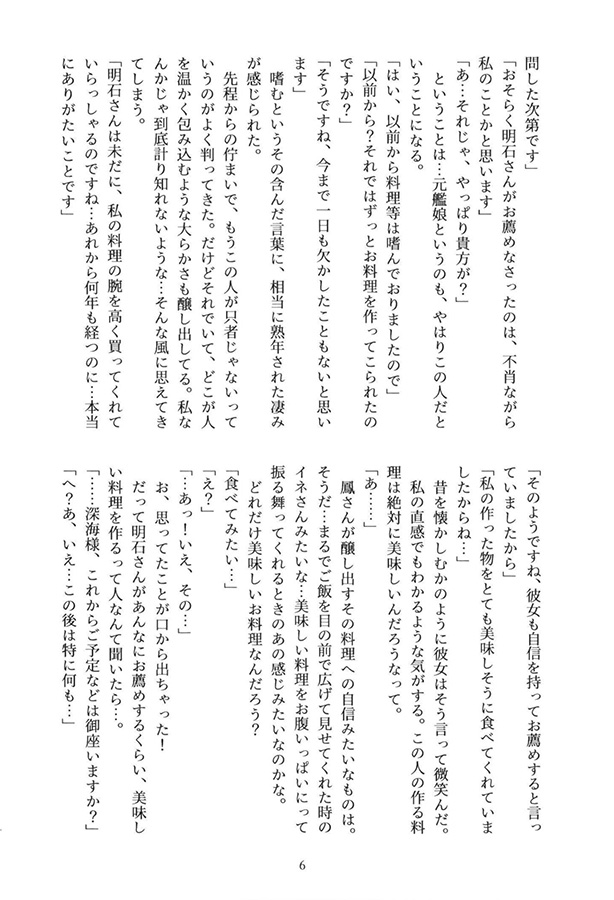 問した次第です」
「おそらく明石さんがお薦めなさったのは、不肖ながら
私のことかと思います」
「あ…それじゃ、やっぱり貴方が?」
ということは…元艦娘というのも、やはりこの人だと
いうことになる。
「はい、以前から料理等は嗜んでおりましたので」
「以前から?それではずっとお料理を作ってこられたの
ですか?」
「そうですね、今まで一日も欠かしたこともないと思い
ます」
嗜むというその含んだ言葉に、相当に熟年された凄み
が感じられた。
先程からの佇まいで、もうこの人が只者じゃないって
いうのがよく判ってきた。だけどそれでいて、どこか人
を温かく包み込むような大らかさも醸し出してる。私な
んかじゃ到底計り知れないような…そんな風に思えてき
てしまう。
「明石さんは未だに、私の料理の腕を高く買ってくれて
いらっしゃるのですね…あれから何年も経つのに…本当
にありがたいことです」
「そのようですね、彼女も自信を持ってお薦めすると言っ
ていましたから」
「私の作った物をとても美味しそうに食べてくれていま
したからね…」
昔を懐かしむかのように彼女はそう言って微笑んだ。
私の直感でもわかるような気がする。この人の作る料
理は絶対に美味しいんだろうなって。
「あ……」
鳳さんが醸し出すその料理への自信みたいなものは。
そうだ…まるでご飯を目の前で広げて見せてくれた時の
イネさんみたいな…美味しい料理をお腹いっぱいにって
振る舞ってくれるときのあの感じみたいなのかな。
どれだけ美味しいお料理なんだろう?
「食べてみたい…」
「え?」
「…あっ!いえ、その…」
お、思ってたことが口から出ちゃった!
だって明石さんがあんなにお薦めするくらい、美味し
い料理を作るって人なんて聞いたら…。
「……深海様、これからご予定などは御座いますか?」
「へ?あ、いえ…この後は特に何も…」
6